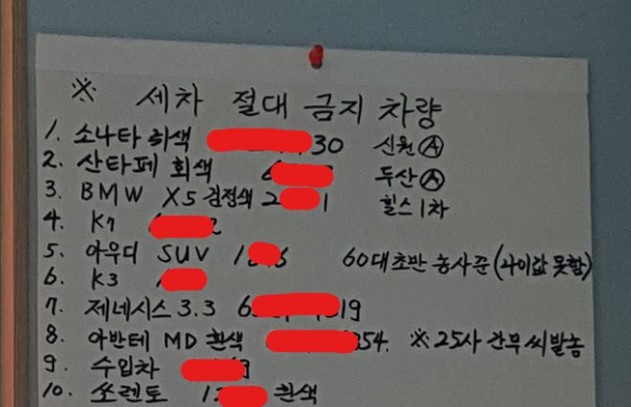 ※ 세차 절대 금지 차량
1. 소나타 희색 30 신원Ⓐ
2. 산타페 회색 6 두산Ⓐ
3. BMW X5 검정색 2 1 힐스1차
4. K7 2
5. 아우디 SUV 1 6 60대초반 농사꾼(나이값못함)
6. K3
7. 제네시스 3.3 6 19
8. 아반테 MD 흰색 354. ※25사 간부 씨발놈
9. 수입차 9
10. 쏘렌토 12 흰색